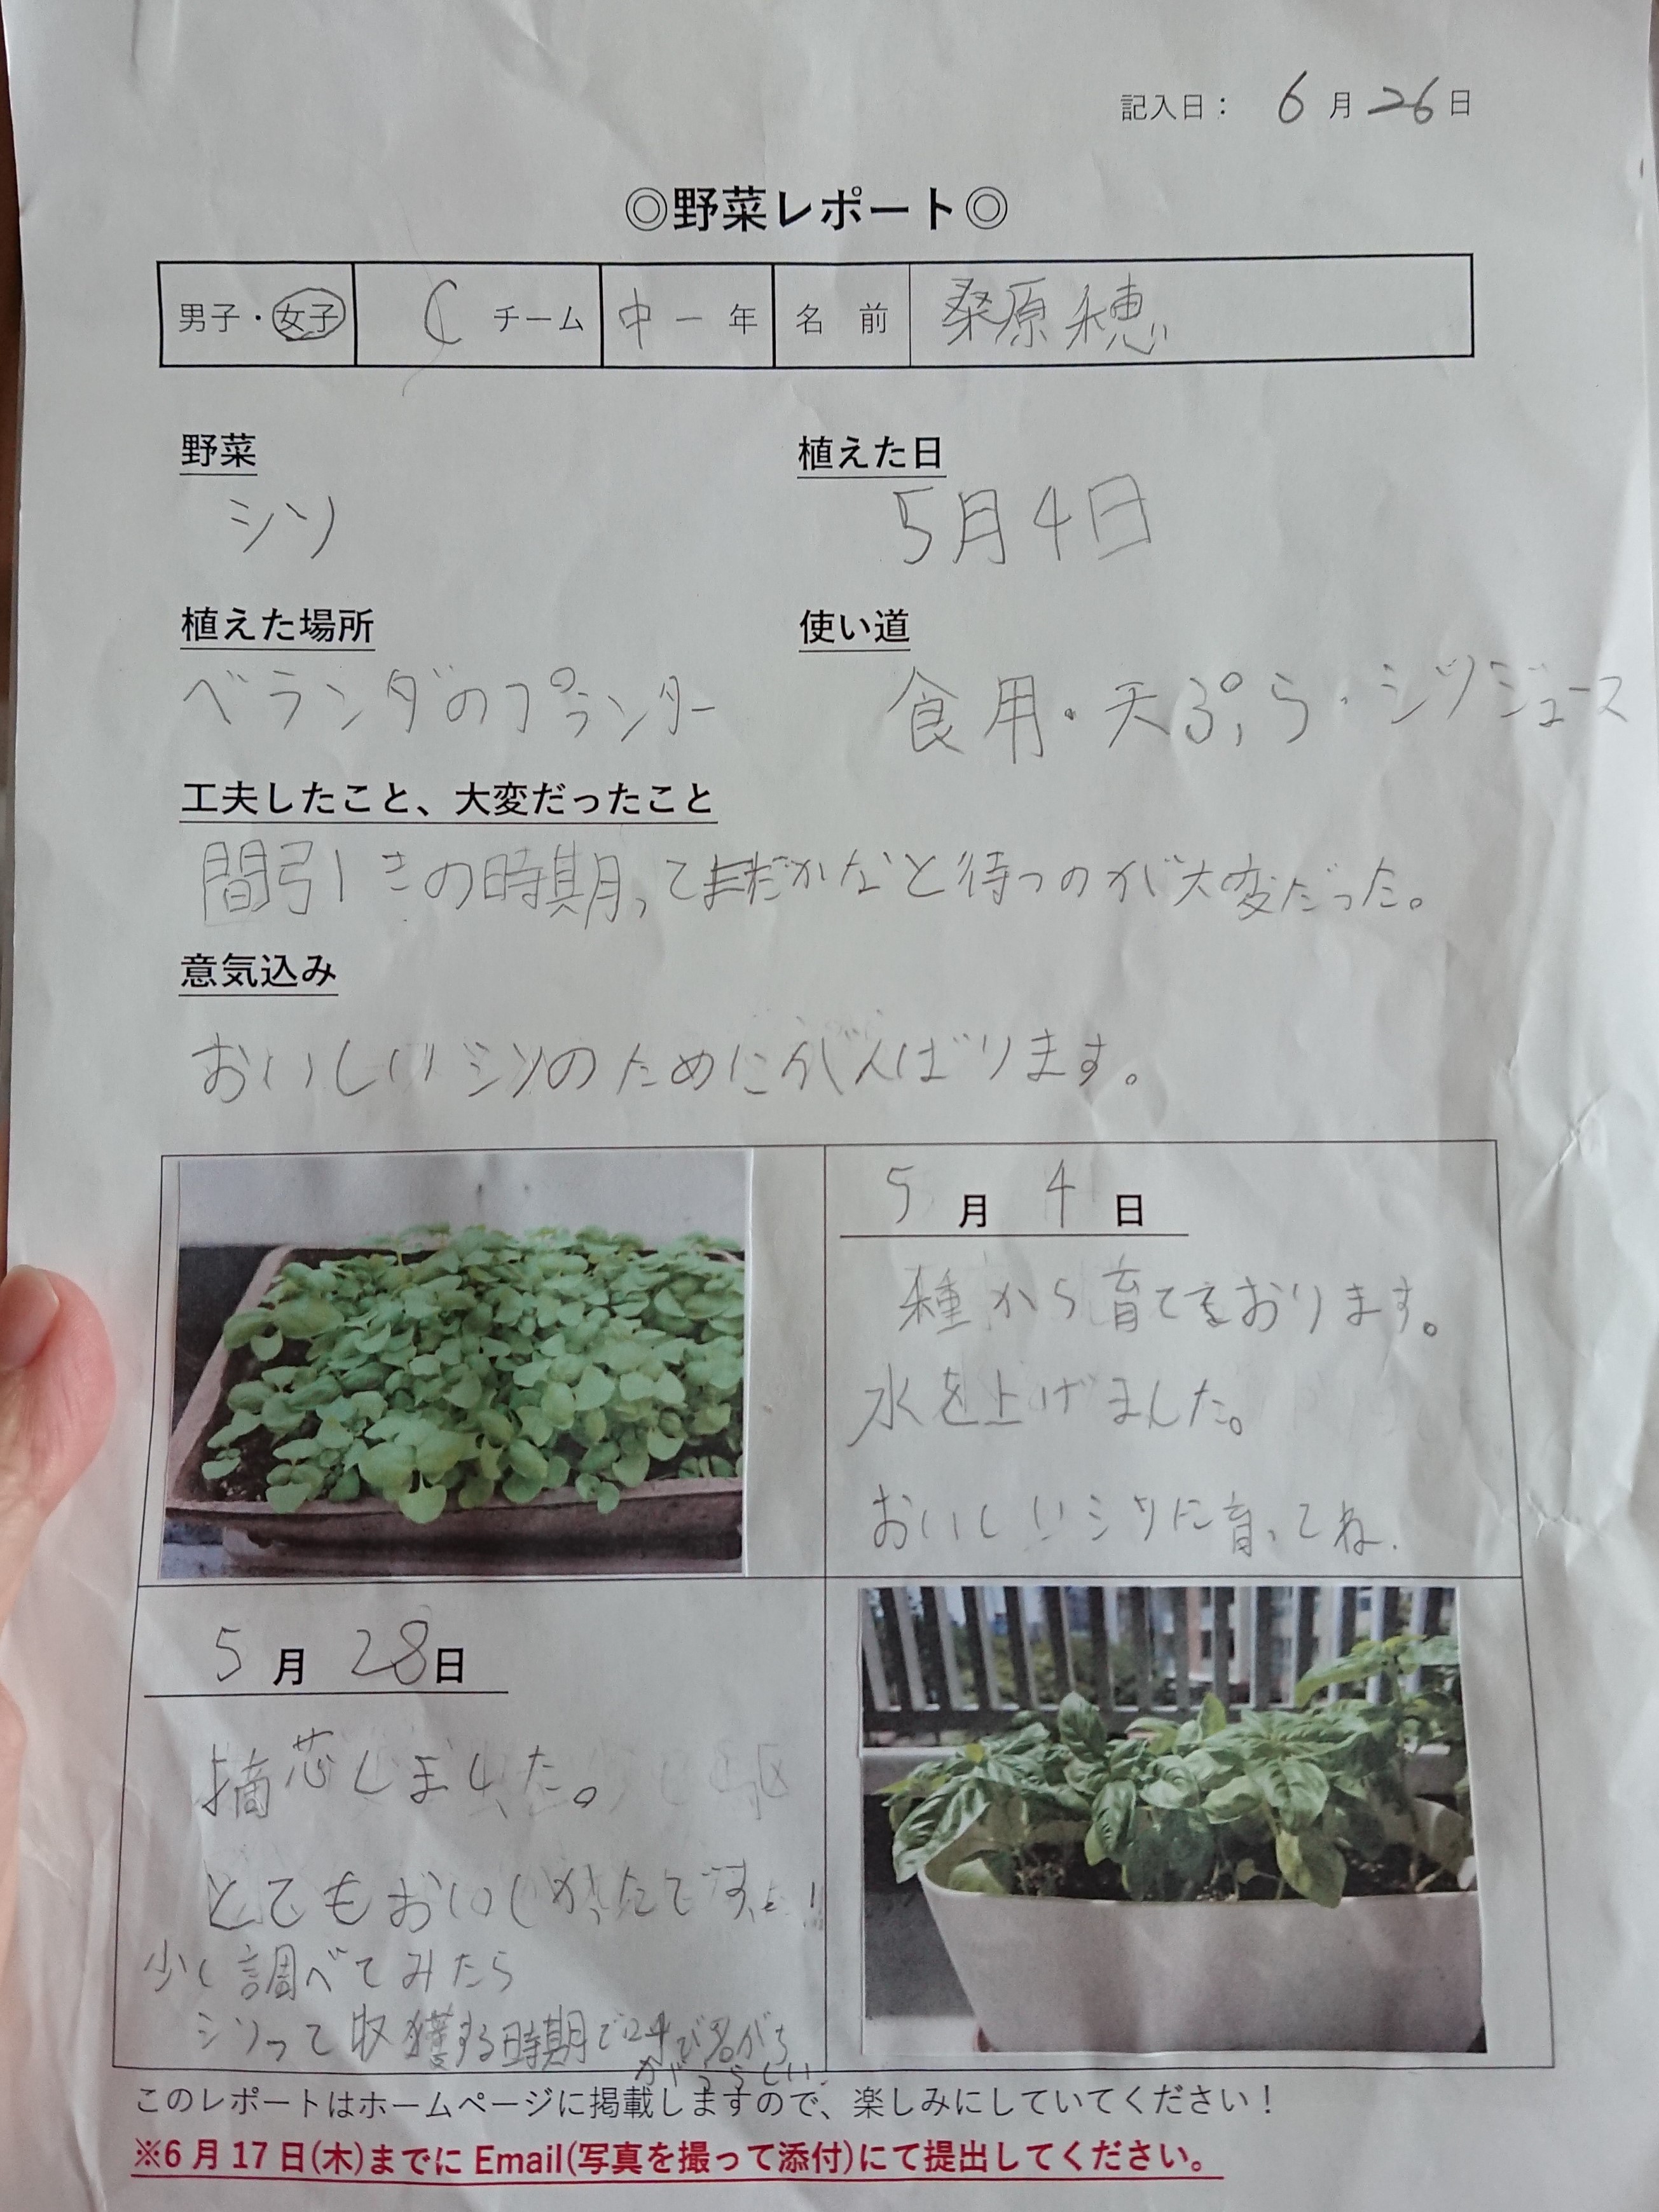 記入日： 6月26日
◎野菜レポート◎
男子・女子 C チーム 中一年 名前 桑原穂
野菜 植えた日
シソ 5月4日
植えた場所 使い道
ベランダのプランター 食用・天ぷら・シソジュース
工夫したこと、大変だったこと
間引きの時期ってまだかなと待つのが大変だった。
意気込み
おいしいシソのためにがんばります。
5月4日
種から育てております。
水を上げました。
おいしいシソに育ってね.
5月28日
摘芯しました。
とてもおいしかったですよ!
少し調べてみたら
シソって収獲する時期で呼び名がち
がうらしい.
このレポートはホームページに掲載しますので、楽しみにしていてください！
※6月17日(木)までにEmail(写真を撮って添付)にて提出してください。